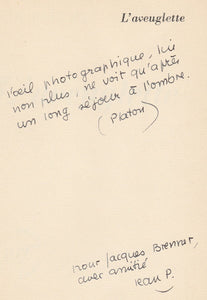 L'aveuglette
l'œil photographique, lui
non plus, ne voit qu'après
un long séjour à l'ombre.
(Platon)
pour Jacques Brenner,
avec amitié
Jean P.